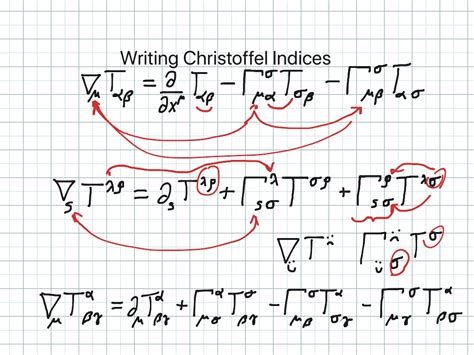 Writing Christoffel Indices
∇_μ T_{αβ} = ∂/∂x^μ T_{αβ} − Γ^σ_{μα} T_{σβ} − Γ^σ_{μβ} T_{ασ}
∇_s T^{λρ} = ∂_s T^{λρ} + Γ^λ_{sσ} T^{σρ} + Γ^ρ_{sσ} T^{λσ}
∇ T Γ_σ T^σ
∇_μ T^α_{βγ} = ∂_μ T^α_{βγ} + Γ^α_{μσ} T^σ_{βγ} − Γ^σ_{μβ} T^α_{σγ} − Γ^σ_{μγ} T^α_{βσ}